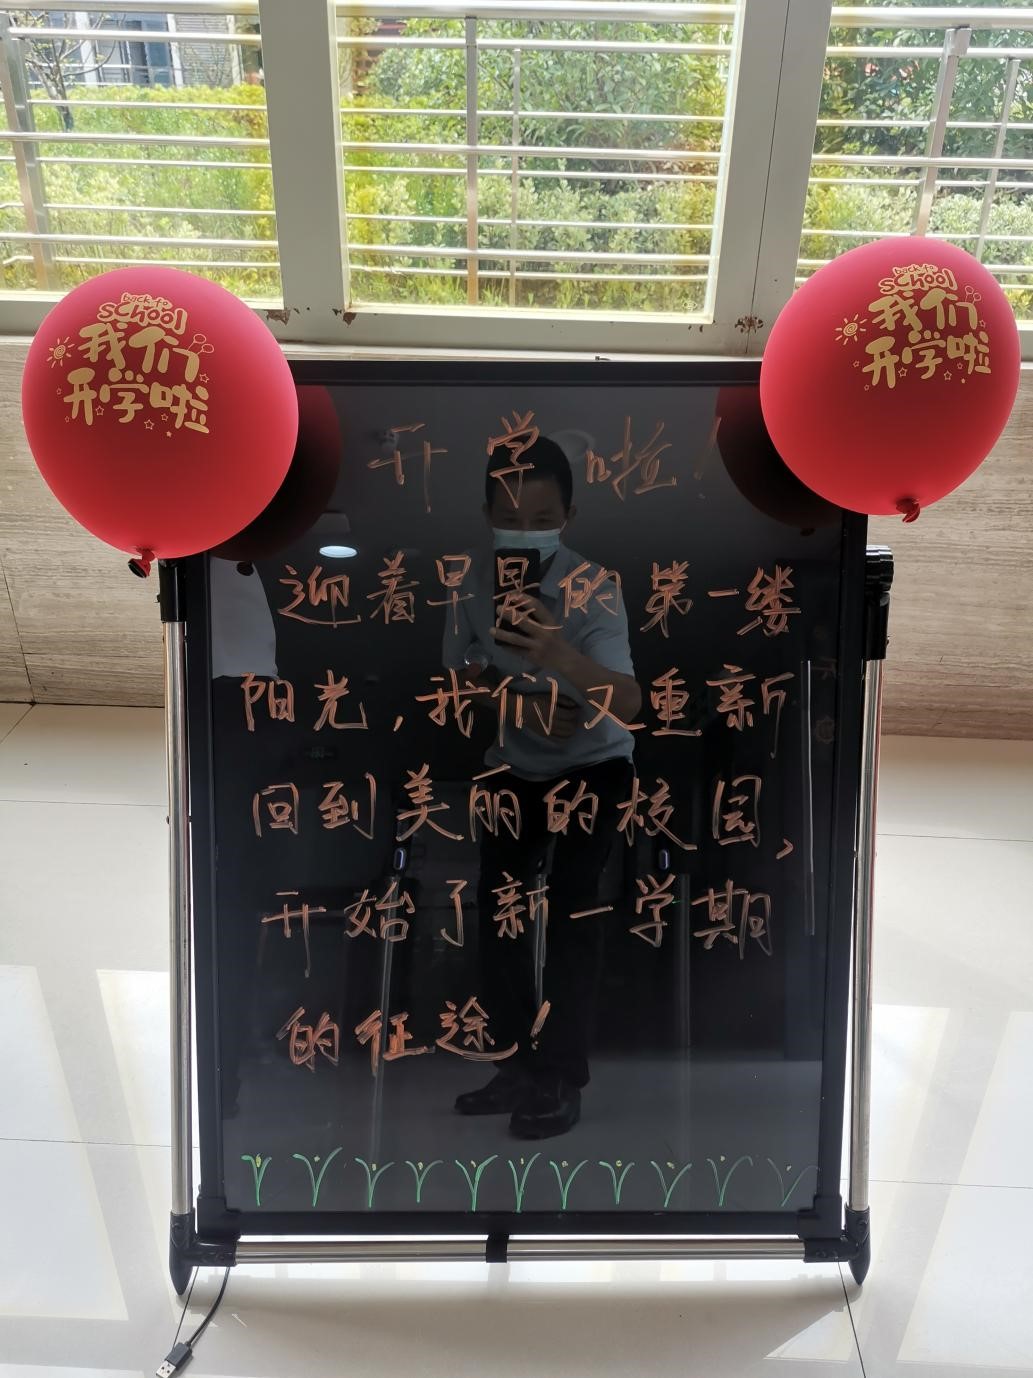 back to
school
我们
开学啦
back to
school
我们
开学啦
开学啦!
迎着早晨的第一缕
阳光,我们又重新
回到美丽的校园,
开始了新一学期
的征途!